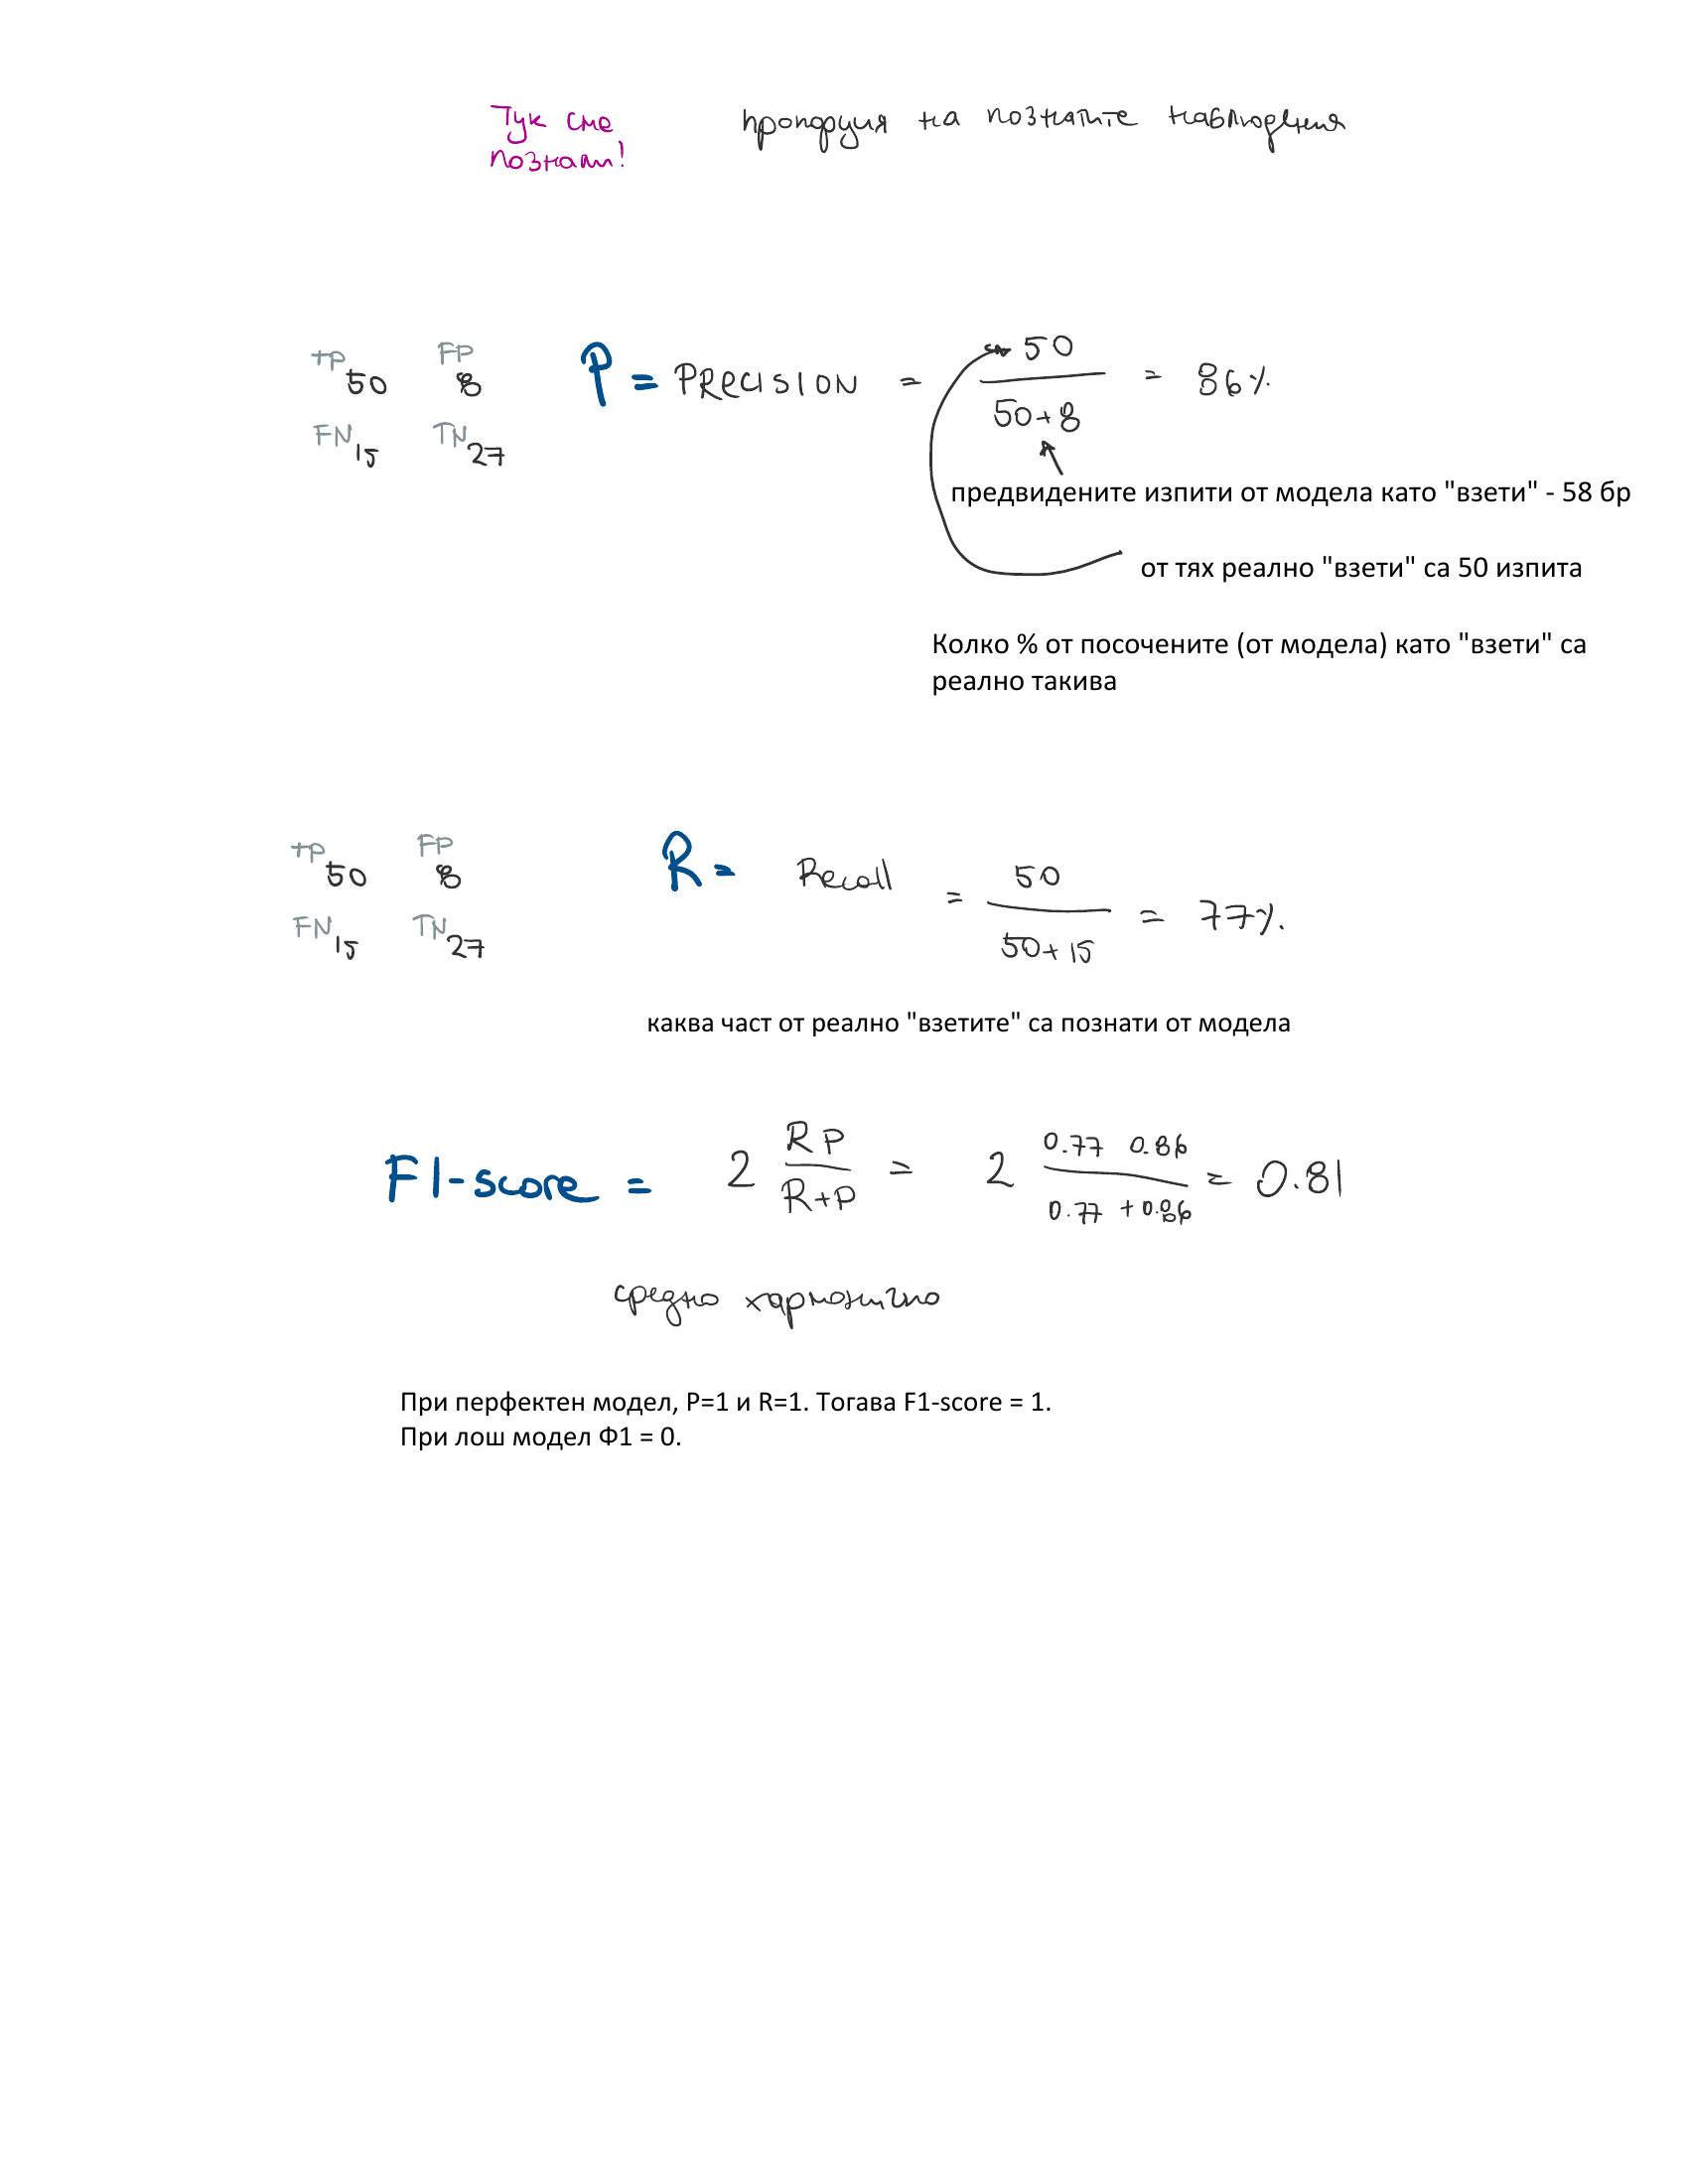 Тук сме
познали!
пропорция на познатите наблюдения
TP FP
50 8
FN TN
15 27
P = PRECISION = 50 / 50+8 = 86%
предвидените изпити от модела като "взети" - 58 бр
от тях реално "взети" са 50 изпита
Колко % от посочените (от модела) като "взети" са
реално такива
TP FP
50 8
FN TN
15 27
R = Recall = 50 / 50+15 = 77%.
каква част от реално "взетите" са познати от модела
F1-score = 2 RP / R+P = 2 0.77 0.86 / 0.77 + 0.86 = 0.81
средно хармонично
При перфектен модел, P=1 и R=1. Тогава F1-score = 1.
При лош модел Ф1 = 0.